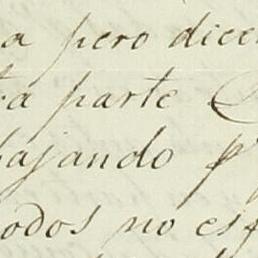 a pero dicen
ta parte
bajando p
odos no es